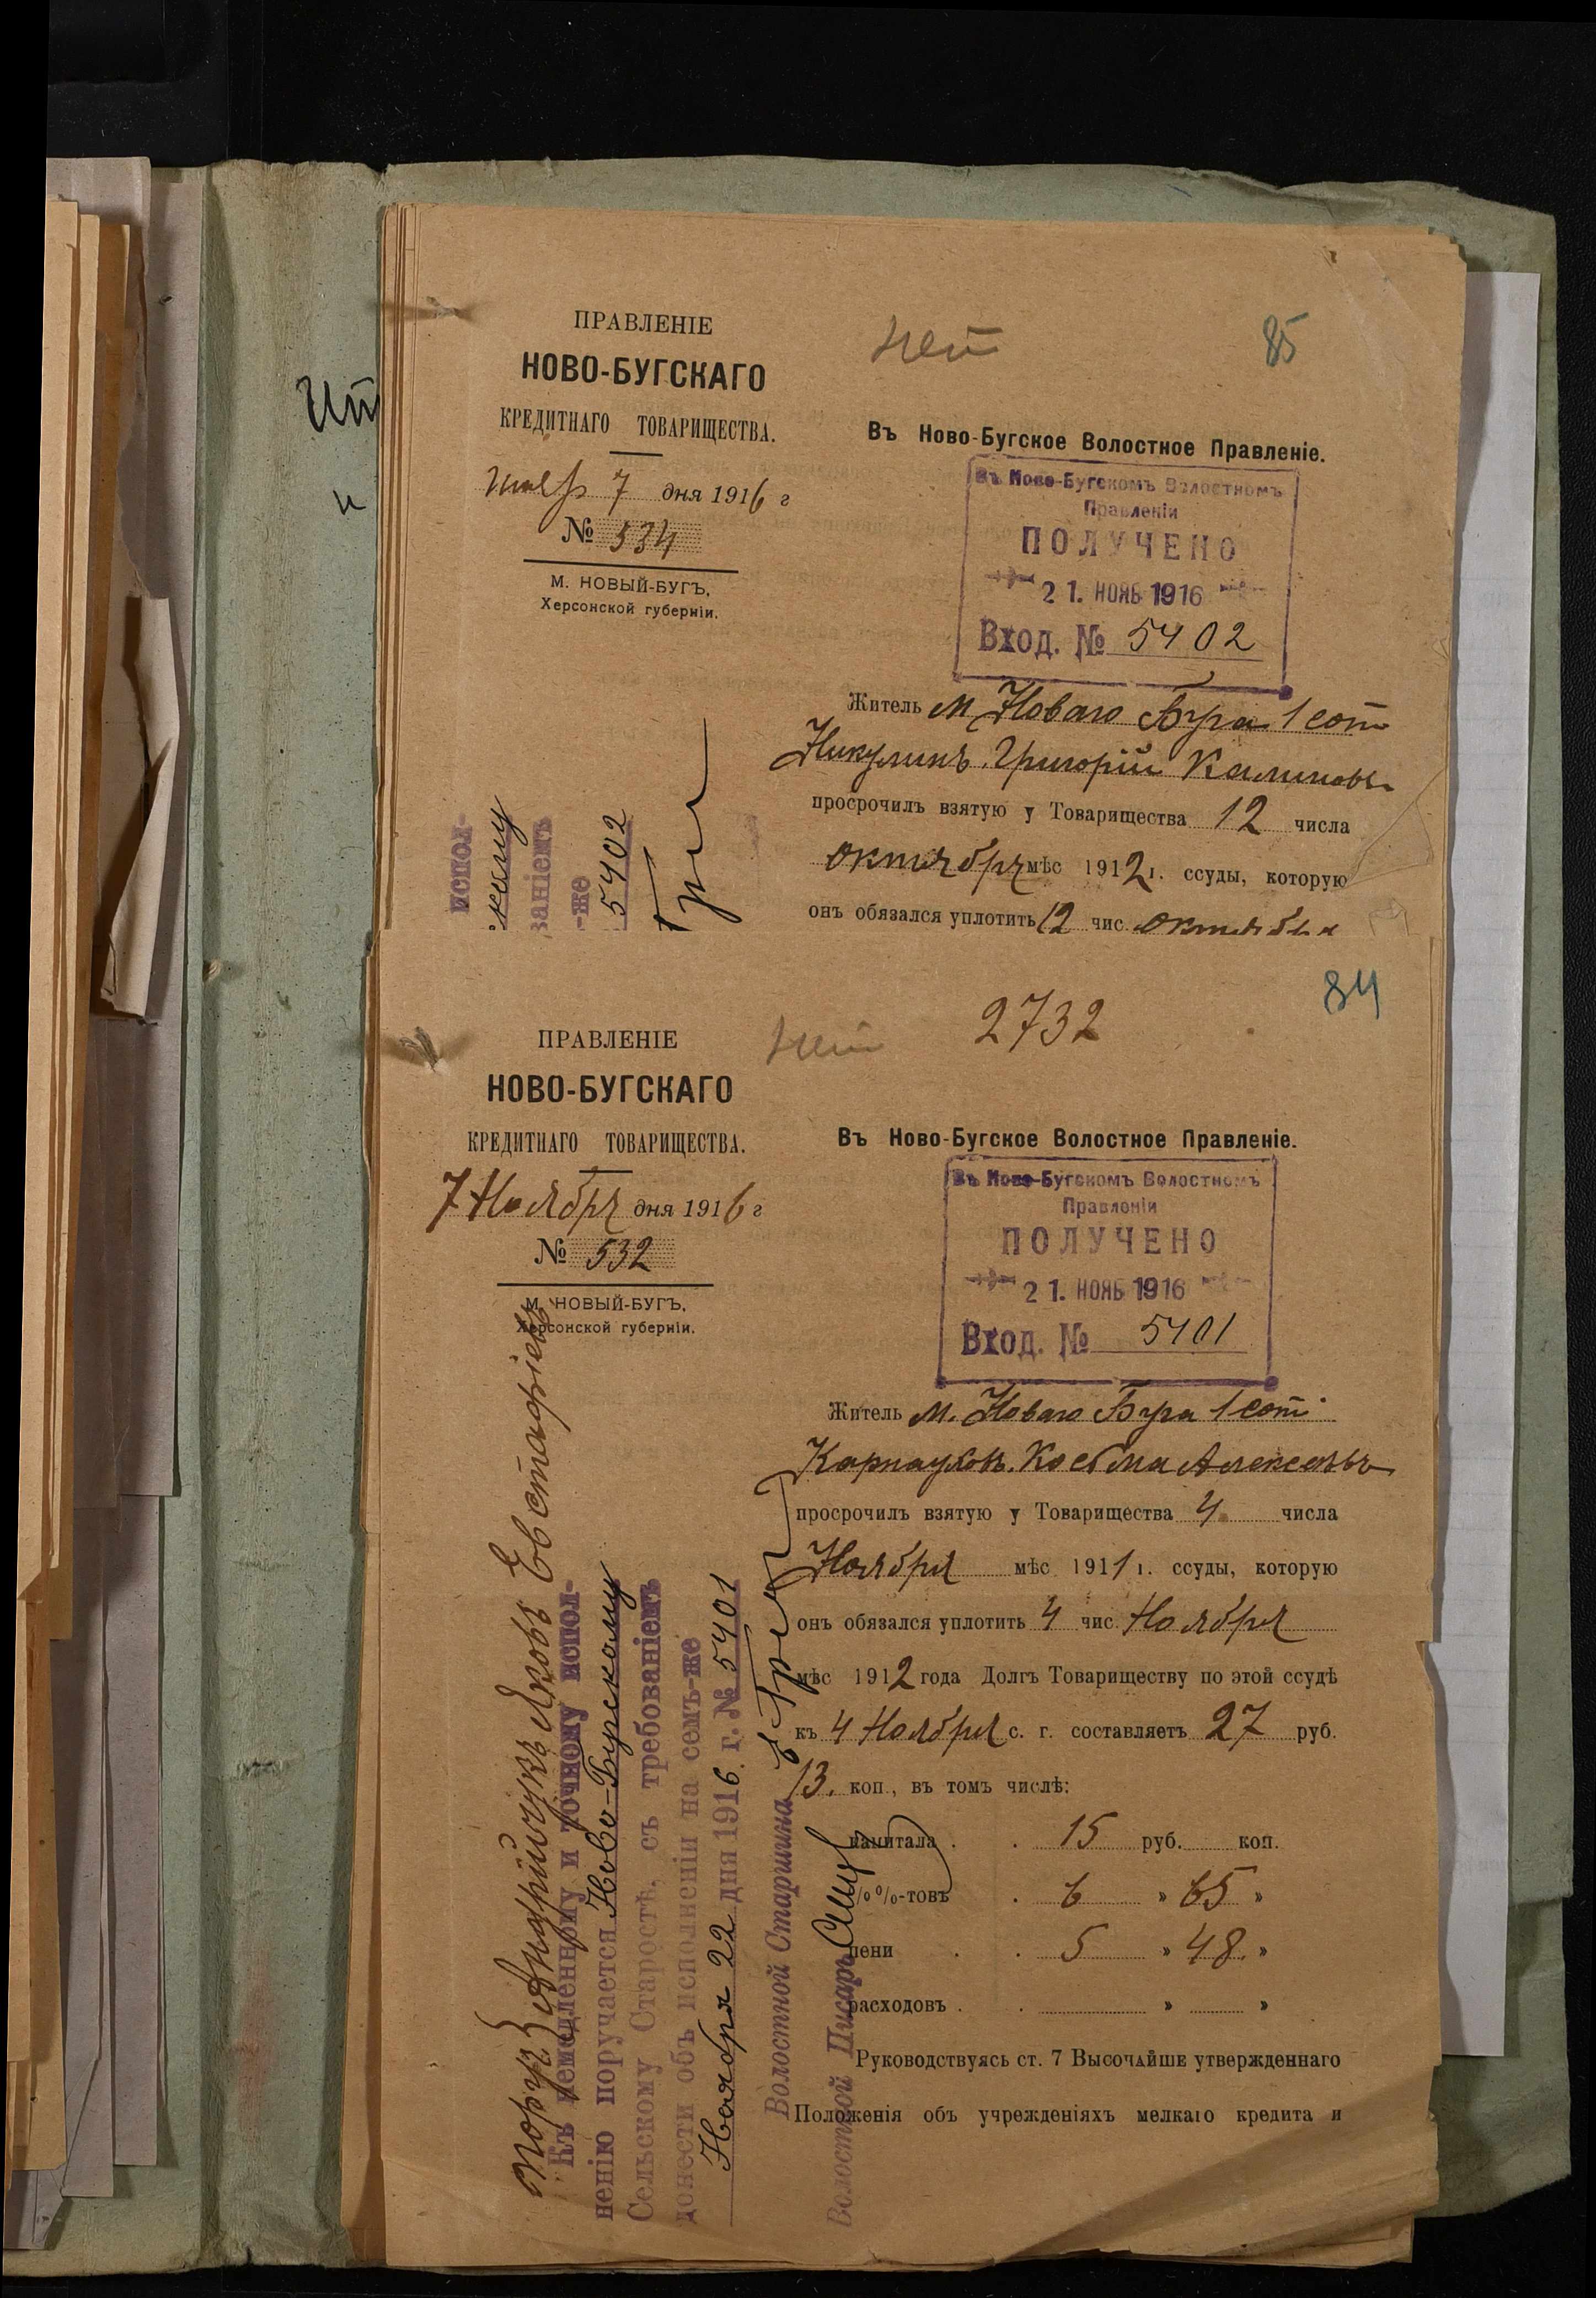 ПРАВЛЕНІЕ
НОВО-БУГСКАГО
КРЕДИТНАГО ТОВАРИЩЕСТВА.
7 дня 1916 г
№ 534
М. НОВЫЙ-БУГЪ,
Херсонской губерніи.
нет
85
Въ Ново-Бугское Волостное Правленіе.
Въ Ново-Бугскомъ Волостномъ
Правленіи
ПОЛУЧЕНО
21. НОЯБ 1916
Вход. № 5402
Житель м. Новаго Буга 1 сот
Никулинъ Григорій Калиновъ
просрочилъ взятую у Товарищества 12 числа
октября мѣс 1912 г. ссуды, которую
онъ обязался уплотить 12 чис. октября
испол-
скому
ваніемъ
-же
5402
84
2732
нет
ПРАВЛЕНІЕ
НОВО-БУГСКАГО
КРЕДИТНАГО ТОВАРИЩЕСТВА.
7 Ноября дня 1916 г
№ 532
М. НОВЫЙ-БУГЪ,
Херсонской губерніи.
Въ Ново-Бугское Волостное Правленіе.
Въ Ново-Бугскомъ Волостномъ
Правленіи
ПОЛУЧЕНО
21. НОЯБ 1916
Вход. № 5401
Житель м. Новаго Буга 1 сот
Карнауховъ Косьма Алексѣевъ
просрочилъ взятую у Товарищества 4 числа
Ноября мѣс 1911 г. ссуды, которую
онъ обязался уплотить 4 чис. Ноября
мѣс 1912 года Долгъ Товариществу по этой ссудѣ
къ 4 Ноября с. г. составляетъ 27 руб.
13. коп., въ томъ числѣ:
капитала . . 15 руб. коп.
%%-товъ . 6 » 65 »
пени . . 5 » 48 »
расходовъ . . » »
Руководствуясь ст. 7 Высочайше утвержденнаго
Положенія объ учрежденіяхъ мелкаго кредита и
Поруч Андрійчукъ Яковъ Евстафіевъ
Къ немедленному и точному испол-
ненію поручается Ново-Бугскому
Сельскому Старостѣ, съ требованіемъ
донести объ исполненіи на семъ-же
Ноября 22 дня 1916 г. № 5401
Волостной Старшина
Волостной Писарь